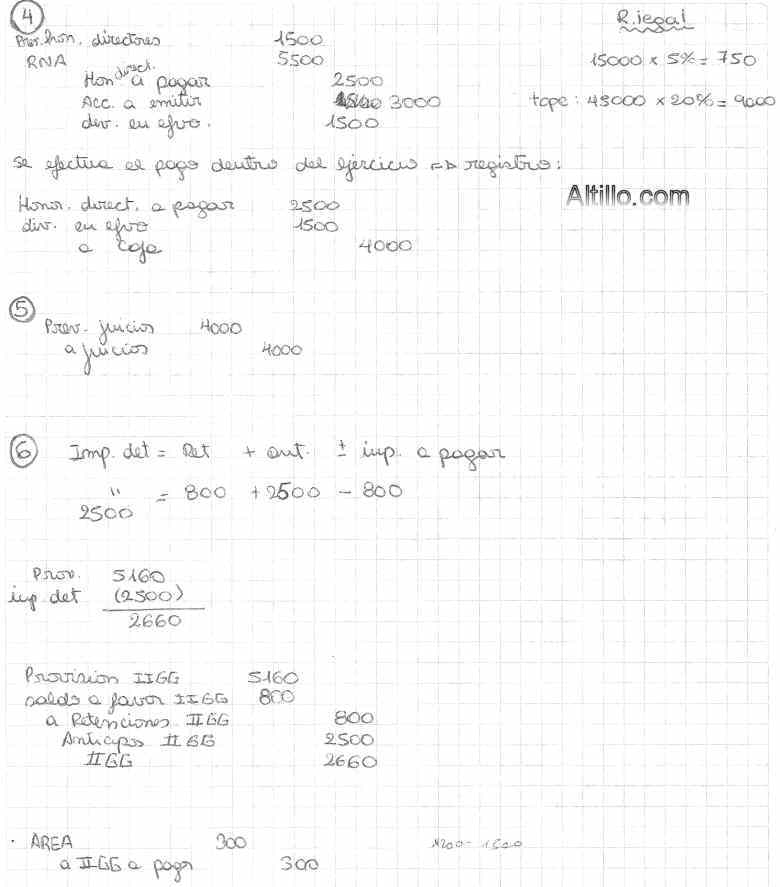 4
R. legal
Prov. hon. directores 1500
RNA 5500
15000 x 5% = 750
Hon direct. a pagar 2500
Acc. a emitir 3000
tope: 45000 x 20% = 9000
div. en efvo. 1500
Se efectua el pago dentro del ejercicio => registro:
Altillo.com
Honor. direct. a pagar 2500
div. en efvo 1500
a Caja 4000
5
Prev. juicios 4000
a juicios 4000
6 Imp. det = Ret + ant. ± imp. a pagar
" = 800 + 2500 - 800
2500
Prov. 5160
imp. det (2500)
2660
Provision IIGG 5160
saldo a favor IIGG 800
a Retenciones IIGG 800
Anticipos IIGG 2500
IIGG 2660
· AREA 300
a IIGG a pagar 300